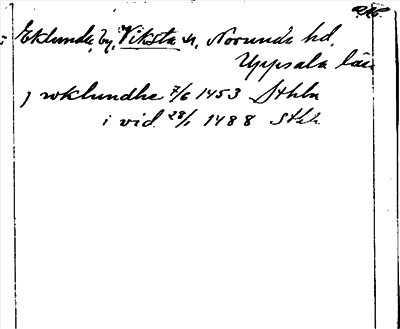 Eklunda, by, Viksta sn, Norunda hd,
Uppsala län
j ωklundhe 7/6 1453 Sthlm
i vid. 28/1 1488 Sthlm